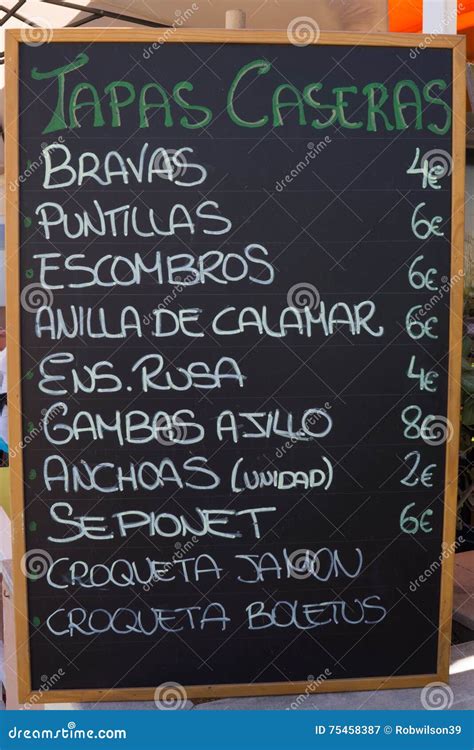 TAPAS CASERAS
BRAVAS 4€
PUNTILLAS 6€
ESCOMBROS 6€
ANILLA DE CALAMAR 6€
ENS. RUSA 4€
GAMBAS AJILLO 8€
ANCHOAS (UNIDAD) 2€
SEPIONET 6€
CROQUETA JAMON
CROQUETA BOLETUS
dreamstime.com
ID 75458387 © Robwilson39